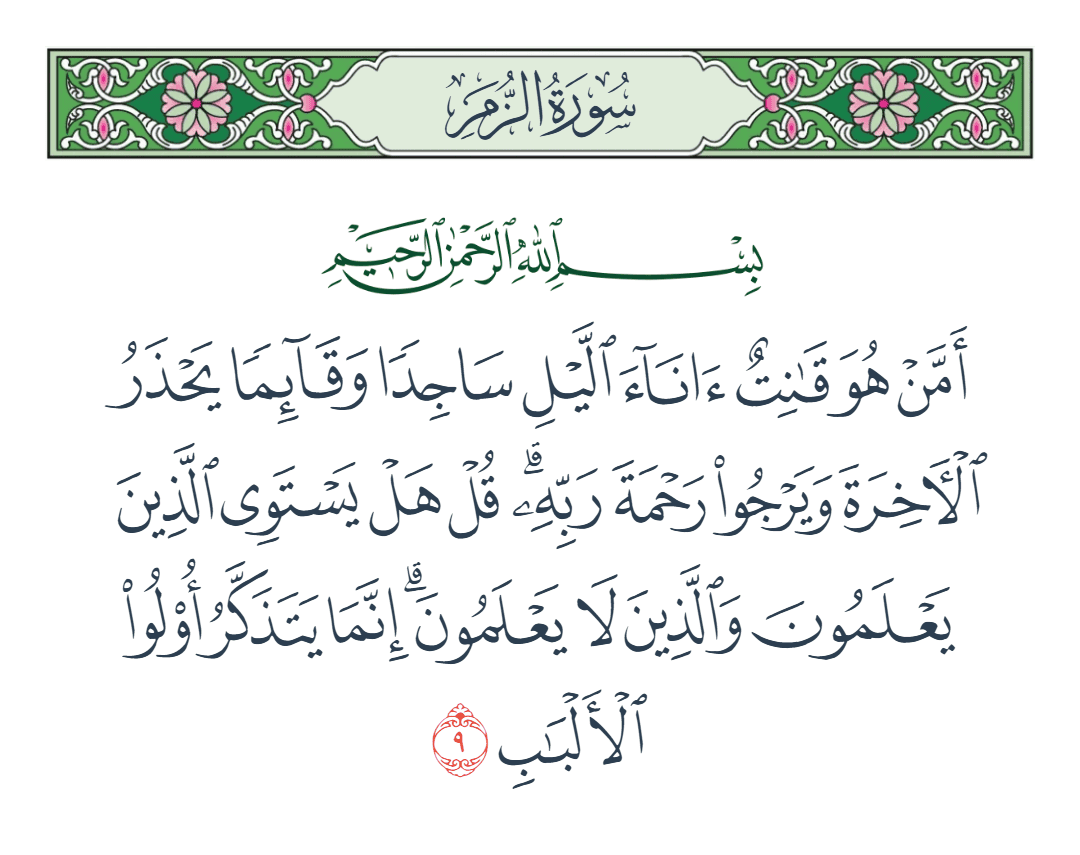 سُورَةُ الزُّمَرِ
بِسْمِ ٱللَّهِ ٱلرَّحْمَٰنِ ٱلرَّحِيمِ
أَمَّنْ هُوَ قَٰنِتٌ ءَانَآءَ ٱلَّيْلِ سَاجِدًا وَقَآئِمًا يَحْذَرُ
ٱلْأَخِرَةَ وَيَرْجُوا۟ رَحْمَةَ رَبِّهِۦ ۗ قُلْ هَلْ يَسْتَوِى ٱلَّذِينَ
يَعْلَمُونَ وَٱلَّذِينَ لَا يَعْلَمُونَ ۗ إِنَّمَا يَتَذَكَّرُ أُو۟لُوا۟
ٱلْأَلْبَٰبِ ٩